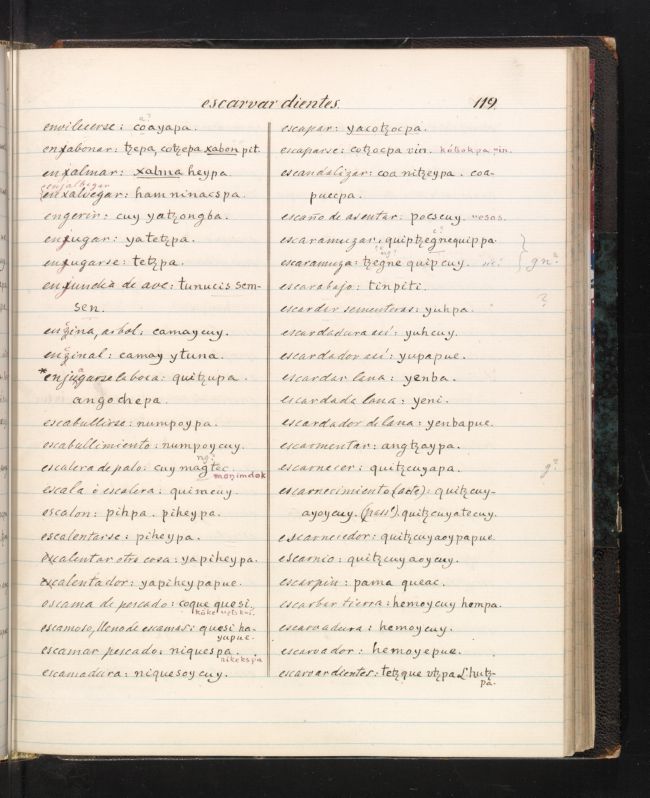 escarvar dientes. 119.
envilecerse: coayapa.
enxabonar: tzepa, cotzepa xabon pit.
enxalmar: xalma heypa.
enjalbegar
enxalvegar: ham ninacspa.
engerir: cuy yatzongba.
enjugar: yatetzpa.
enjugarse: tetzpa.
enjundia de ave: tunucis sem-
sen.
enzina, arbol: camaycuy.
enzinal: camay ytuna.
*enjugarse la boca: quitzupa.
angochepa.
escabullirse: numpoypa.
escabullimiento: numpoycuy.
ng?
escalera de palo: cuy magtec.
moŋimdok
escala ó escalera: quimcuy.
escalon: pihpa. piheypa.
escalentarse: piheypa.
escalentar otra cosa: yapiheypa.
escalentador: yapiheypapue.
escama de pescado: coque quesi.
escamoso, lleno de escamas: quesi ha-
yapue.
escamar pescado: niquespa.
nikekspa
escamadura: niquesoycuy.
escapar: yacotzocpa.
escaparse: cotzocpa vin. kótsokpa vin.
escandalizar: coa nitzeypa. coa-
puecpa.
escaño de asentar: pocscuy.
escaramuzar: quiptzegnequippa.
escaramuza: tzegne quipcuy. gn?
escarabajo: tinpiti.
?
escardar sementeras: yuhpa.
escardadura asi: yuhcuy.
escardador asi: yupapue.
escardar lana: yenba.
escardada lana: yeni.
escardador de lana: yenbapue.
escarmentar: angtzaypa.
escarnecer: quitzcuyapa. g?
escarnecimiento (acte): quitzcuy-
ayoycuy. (pass!). quitzcuyatecuy.
escarnecedor: quitzcuyaoypapue.
escarnio: quitzcuyaoycuy.
escarpin: pama queac.
escarbar tierra: hemoycuy hempa.
escarvadura: hemoycuy.
escarvador: hemoyepue.
escarvar dientes: tetzque vtzpa l'hutz-
pa.